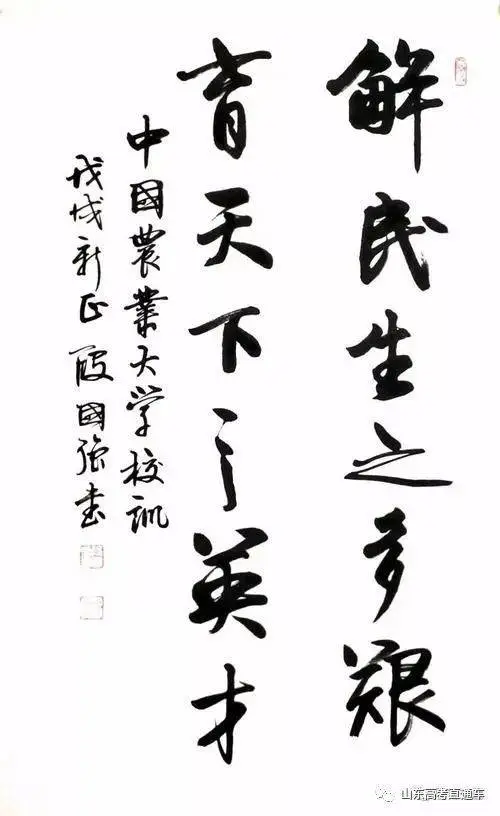 解民生之多艰
育天下之英才
中國農業大学校训
戊戌新正 殷國强书
山东高考直通车